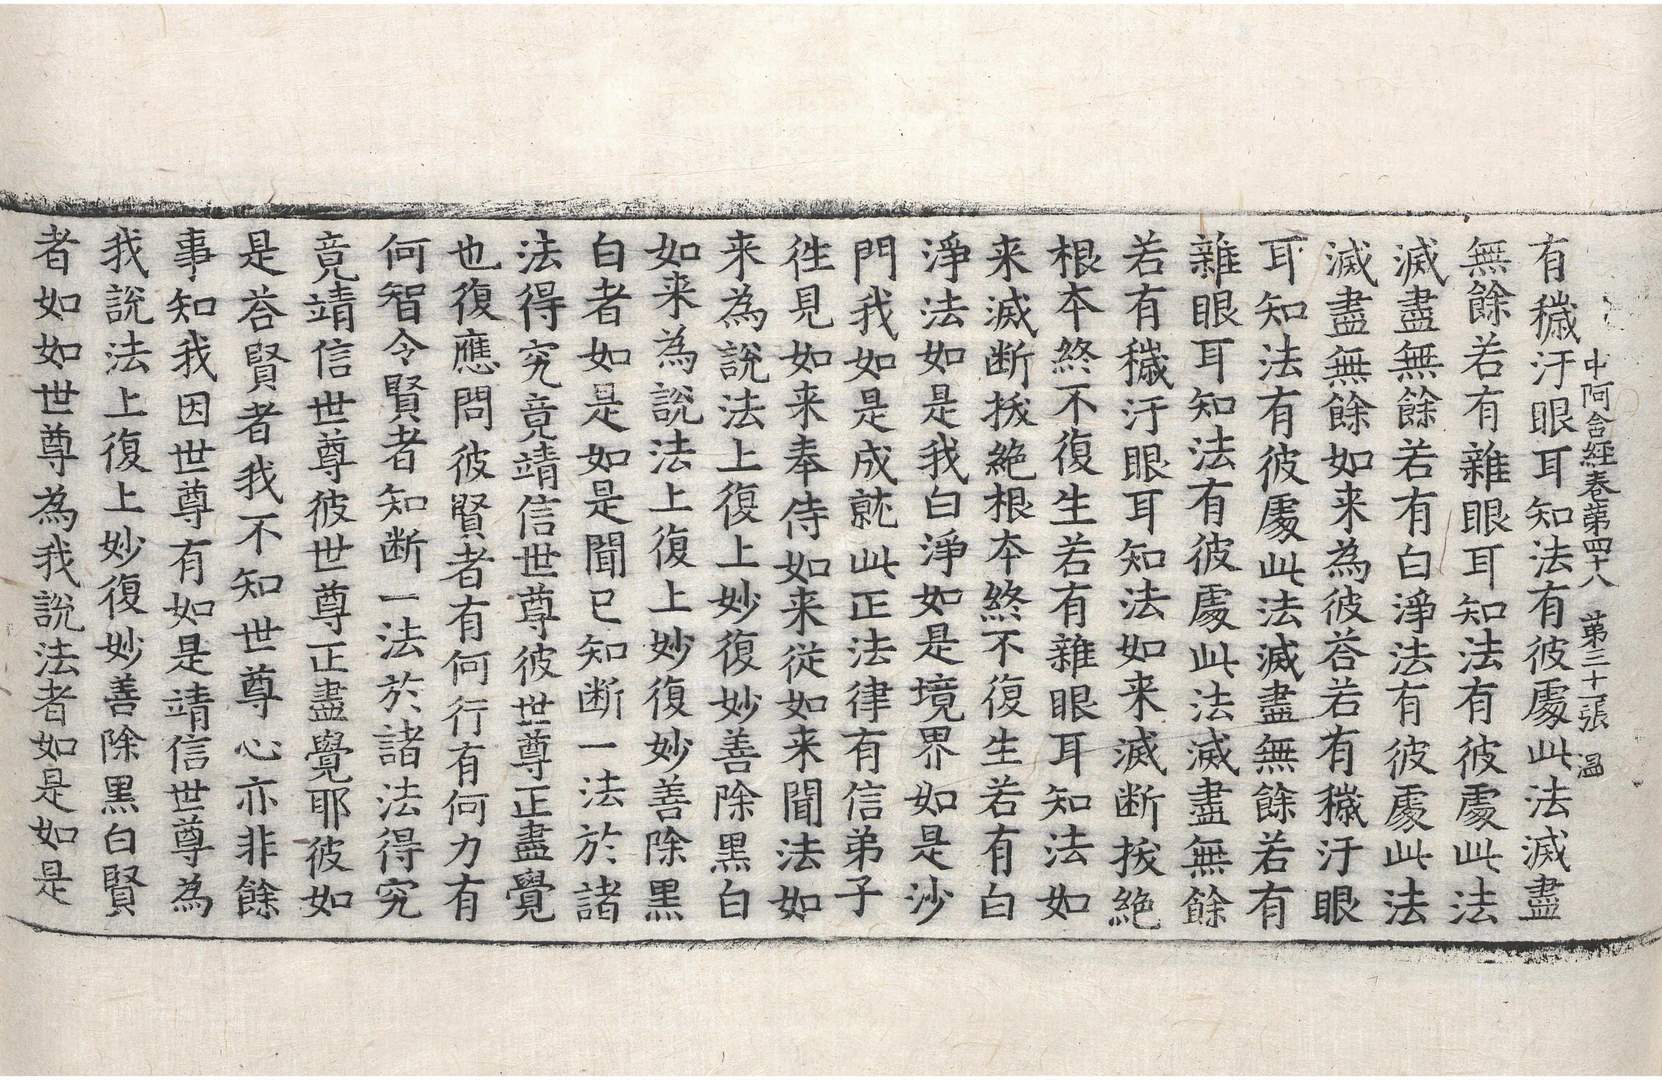 中阿含経卷第四十八　第三十一張　溫
有穢汙眼耳知法有彼處此法滅盡
無餘若有雜眼耳知法有彼處此法
滅盡無餘若有白淨法有彼處此法
滅盡無餘如来為彼荅若有穢汙眼
耳知法有彼處此法滅盡無餘若有
雜眼耳知法有彼處此法滅盡無餘
若有穢汙眼耳知法如来滅断拔絶
根本終不復生若有雜眼耳知法如
来滅断拔絶根本終不復生若有白
淨法如是我白淨如是境界如是沙
門我如是成就此正法律有信弟子
徃見如来奉侍如来従如来聞法如
来為說法上復上妙復妙善除黒白
如来為說法上復上妙復妙善除黒
白者如是如是聞已知断一法於諸
法得究竟靖信世尊彼世尊正盡覺
也復應問彼賢者有何行有何力有
何智令賢者知断一法於諸法得究
竟靖信世尊彼世尊正盡覺耶彼如
是荅賢者我不知世尊心亦非餘
事知我因世尊有如是靖信世尊為
我說法上復上妙復妙善除黒白賢
者如如世尊為我說法者如是如是